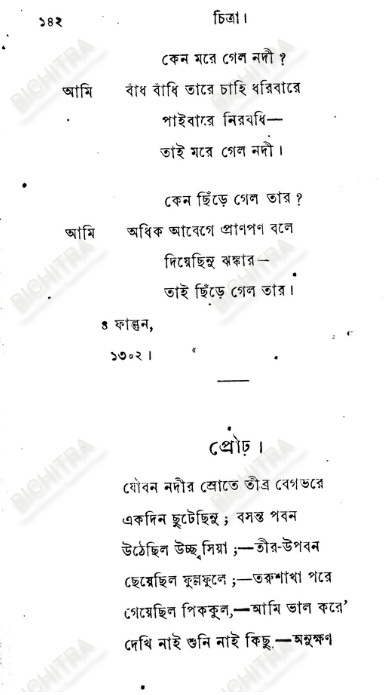 ১৪২ চিত্রা।
কেন মরে গেল নদী ?
আমি বাঁধ বাঁধি তারে চাহি ধরিবারে
পাইবারে নিরবধি—
তাই মরে গেল নদী।
কেন ছিঁড়ে গেল তার ?
আমি অধিক আবেগে প্রাণপণ বলে
দিয়েছিনু ঝঙ্কার—
তাই ছিঁড়ে গেল তার।
৪ ফাল্গুন,
১৩০২।
প্রৌঢ়।
যৌবন নদীর স্রোতে তীব্র বেগভরে
একদিন ছুটেছিনু ; বসন্ত পবন
উঠেছিল উচ্ছ্বসিয়া ;—তীর-উপবন
ছেয়েছিল ফুল্লফুলে ;—তরুশাখা পরে
গেয়েছিল পিককুল,—আমি ভাল করে'
দেখি নাই শুনি নাই কিছু—অনুক্ষণ
BICHITRA
BICHITRA
BICHITRA
BICHITRA
BICHITRA
BICHITRA